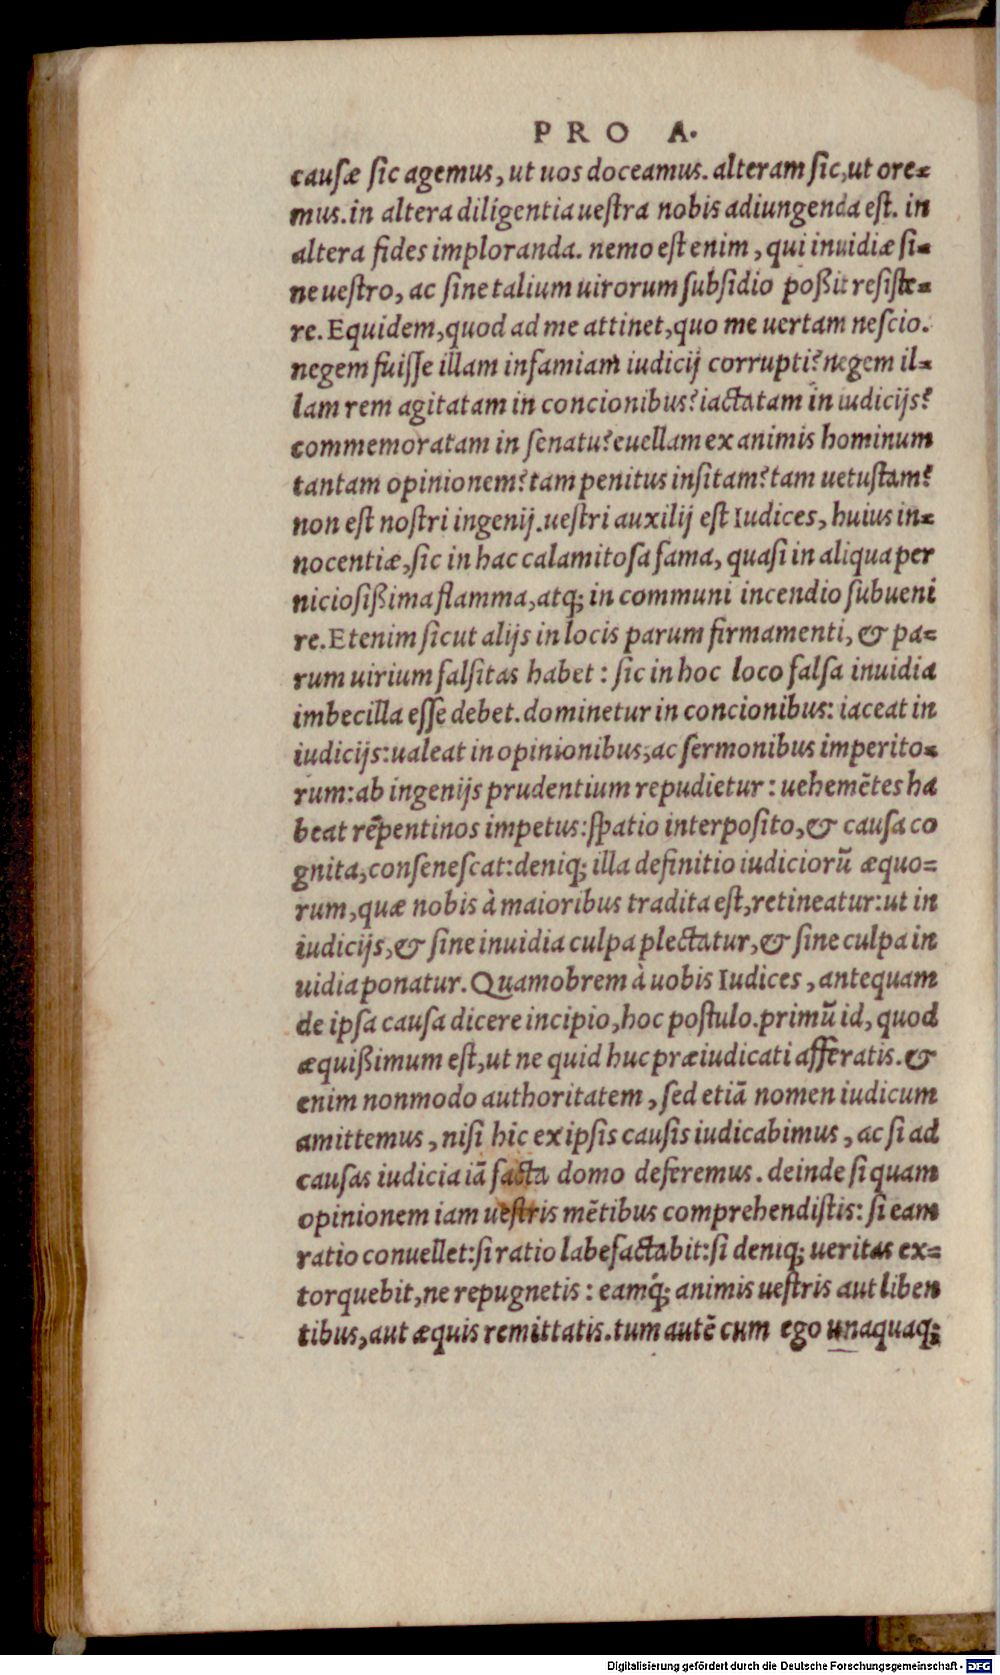 PRO A.
causæ sic agemus, ut uos doceamus. alteram sic, ut ore-
mus. in altera diligentia uestra nobis adiungenda est. in
altera fides imploranda. nemo est enim, qui inuidiæ si-
ne uestro, ac sine talium uirorum subsidio poßit resiste-
re. Equidem, quod ad me attinet, quo me uertam nescio.
negem fuisse illam infamiam iudicij corrupti? negem il-
lam rem agitatam in concionibus? iactatam in iudicijs?
commemoratam in senatu? euellam ex animis hominum
tantam opinionem? tam penitus insitam? tam uetustam?
non est nostri ingenij. uestri auxilij est Iudices, huius in-
nocentiæ, sic in hac calamitosa fama, quasi in aliqua per
niciosißima flamma, atq; in communi incendio subueni
re. Etenim sicut alijs in locis parum firmamenti, & pa-
rum uirium falsitas habet: sic in hoc loco falsa inuidia
imbecilla esse debet. dominetur in concionibus: iaceat in
iudicijs: ualeat in opinionibus, ac sermonibus imperito-
rum: ab ingenijs prudentium repudietur: uehemētes ha
beat rēpentinos impetus: spatio interposito, & causa co
gnita, consenescat: deniq; illa definitio iudiciorū æquo-
rum, quæ nobis à maioribus tradita est, retineatur: ut in
iudicijs, & sine inuidia culpa plectatur, & sine culpa in
uidia ponatur. Quamobrem à uobis Iudices, antequam
de ipsa causa dicere incipio, hoc postulo. primū id, quod
æquißimum est, ut ne quid huc præiudicati afferatis. &
enim nonmodo authoritatem, sed etiā nomen iudicum
amittemus, nisi hic ex ipsis causis iudicabimus, ac si ad
causas iudicia iā facta domo deferemus. deinde si quam
opinionem iam uestris mētibus comprehendistis: si eam
ratio conuellet: si ratio labefactabit: si deniq; ueritas ex-
torquebit, ne repugnetis: eamq́; animis uestris aut liben
tibus, aut æquis remittatis. tum autē cum ego unaquaq;
Digitalisierung gefördert durch die Deutsche Forschungsgemeinschaft - DFG